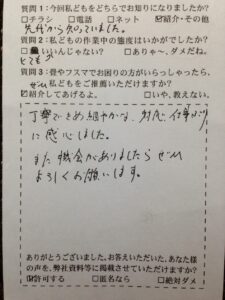 質問1:今回私どもをどちらでお知りになりましたか?
□チラシ □電話 □ネット ☑紹介・その他
先代から知っていました。
質問2:私どもの作業中の態度はいかがでしたか?
■いいんじゃない? □ありゃ〜、ダメだね。
とても
質問3:畳やフスマでお困りの方がいらっしゃったら、
ぜひ私どもをご推薦いただけますか?
☑紹介してあげるよ。 □いや、教えない。
丁寧できめ細やかな、対応、仕事ぶり
に感心しました。
また機会がありましたらぜひ
よろしくお願いします。
ありがとうございました、お答えいただいた、あなた様
の声を、弊社資料等に掲載させていただけますか?
☑許可する □匿名なら □絶対ダメ